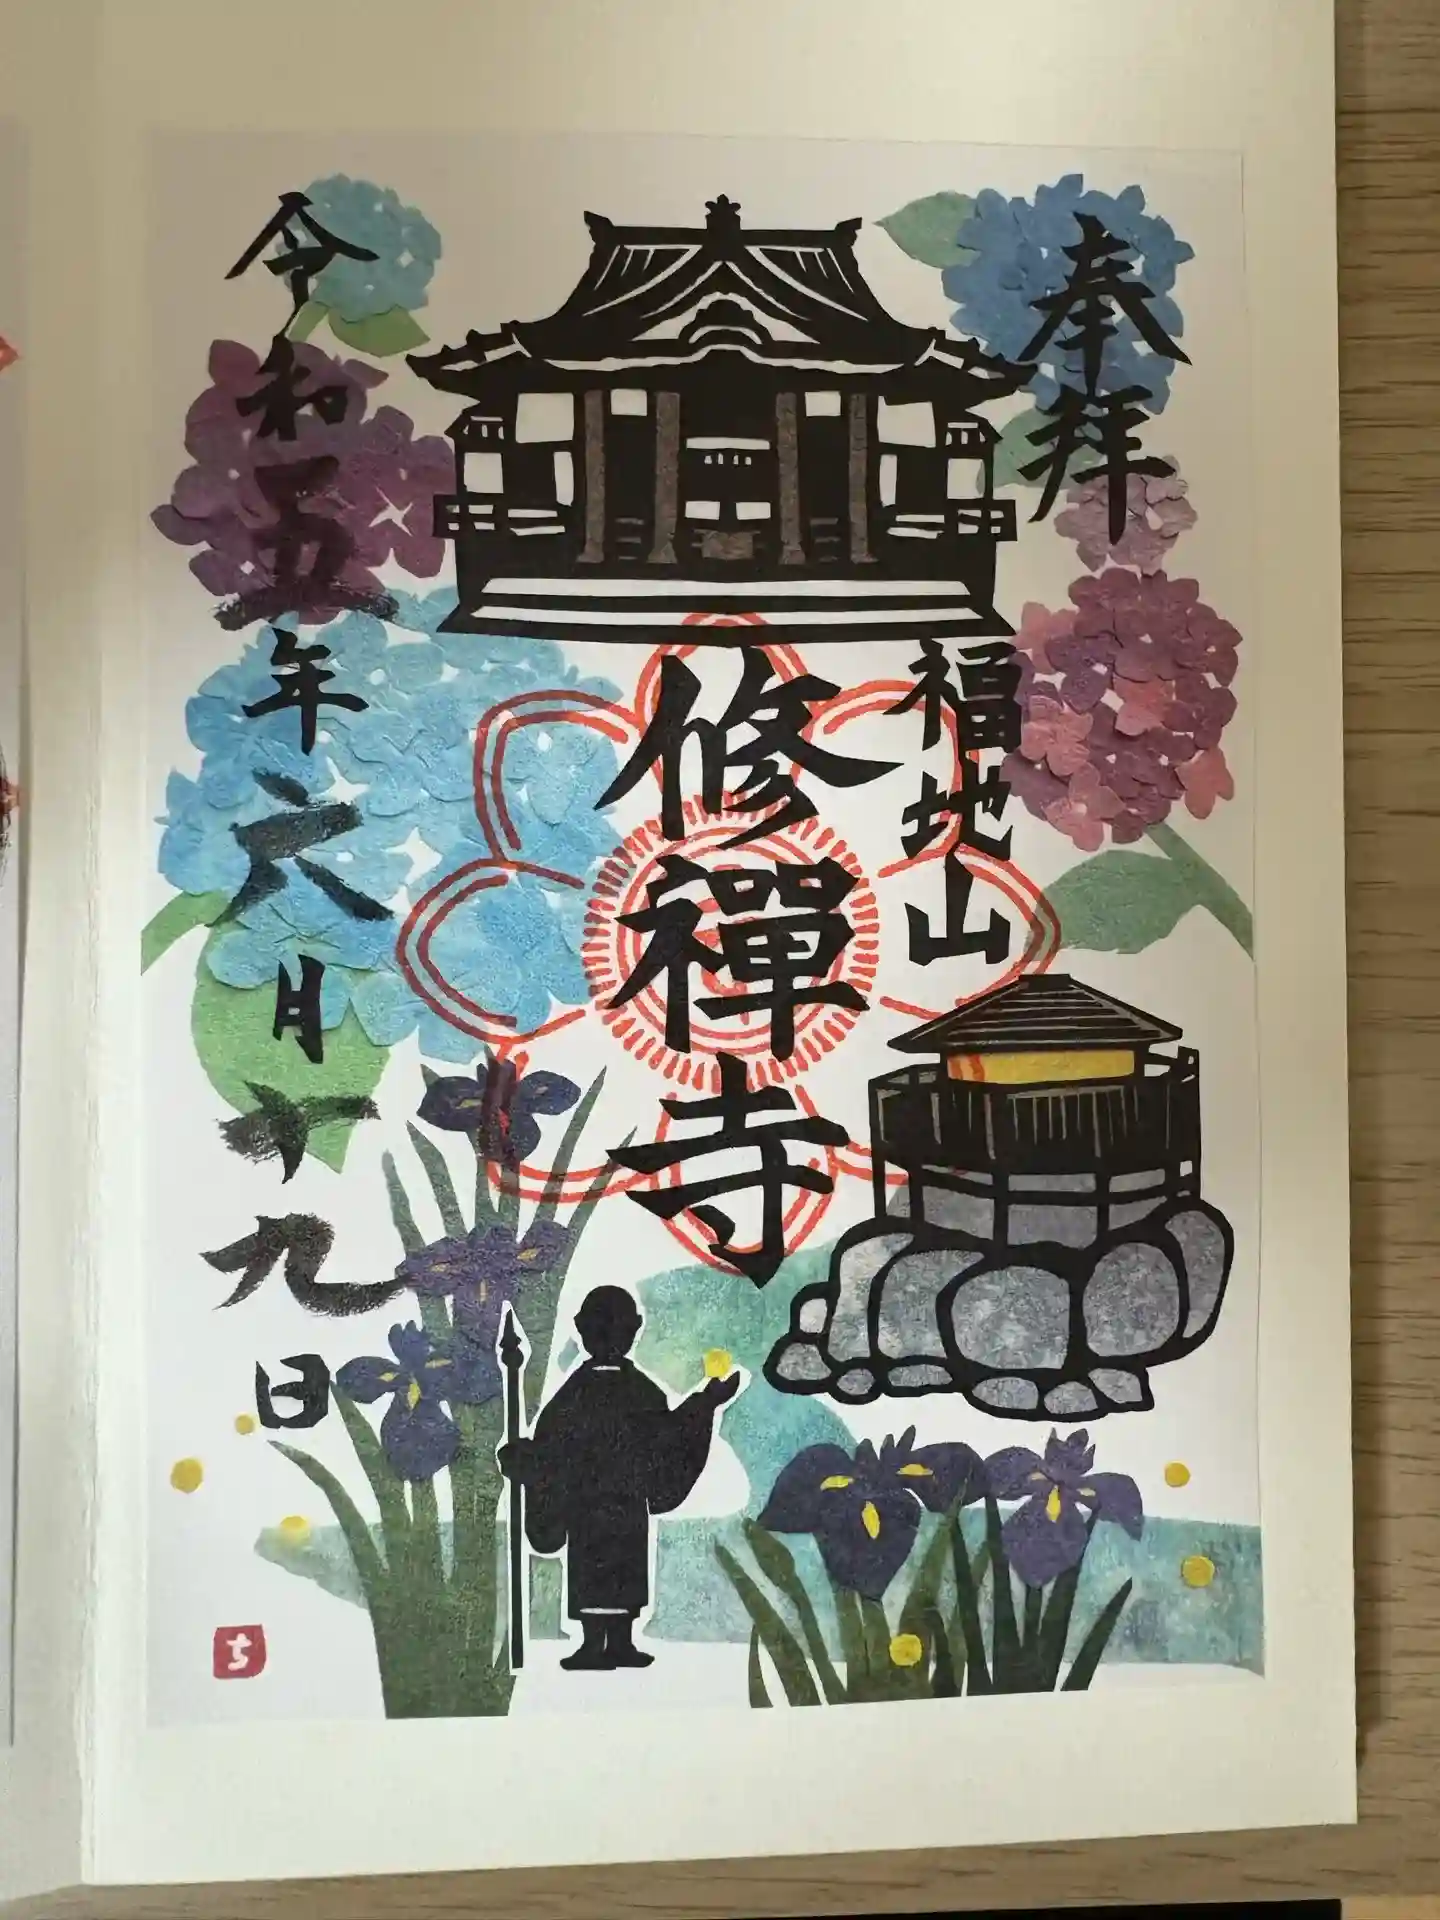 奉拝
福地山
修禪寺
令和五年六月十九日
ち